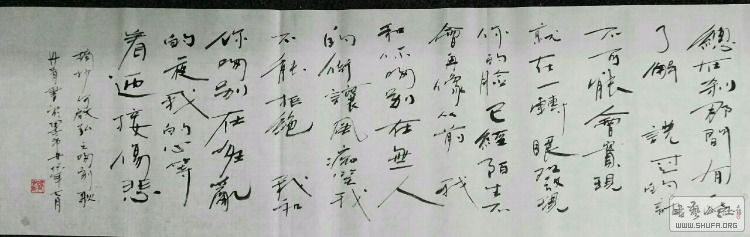 總在剎那間有一
了解 說過的話
不可能會實現
就在一轉眼發現
你的臉已經陌生不
會再像從前 我
和你吻別在無人
的街讓風痴笑我
不能拒絕 我和
你吻別在狂亂
的夜我的心等
着迎接傷悲
摘抄 吻別 歌
WWW.SHUFA.ORG